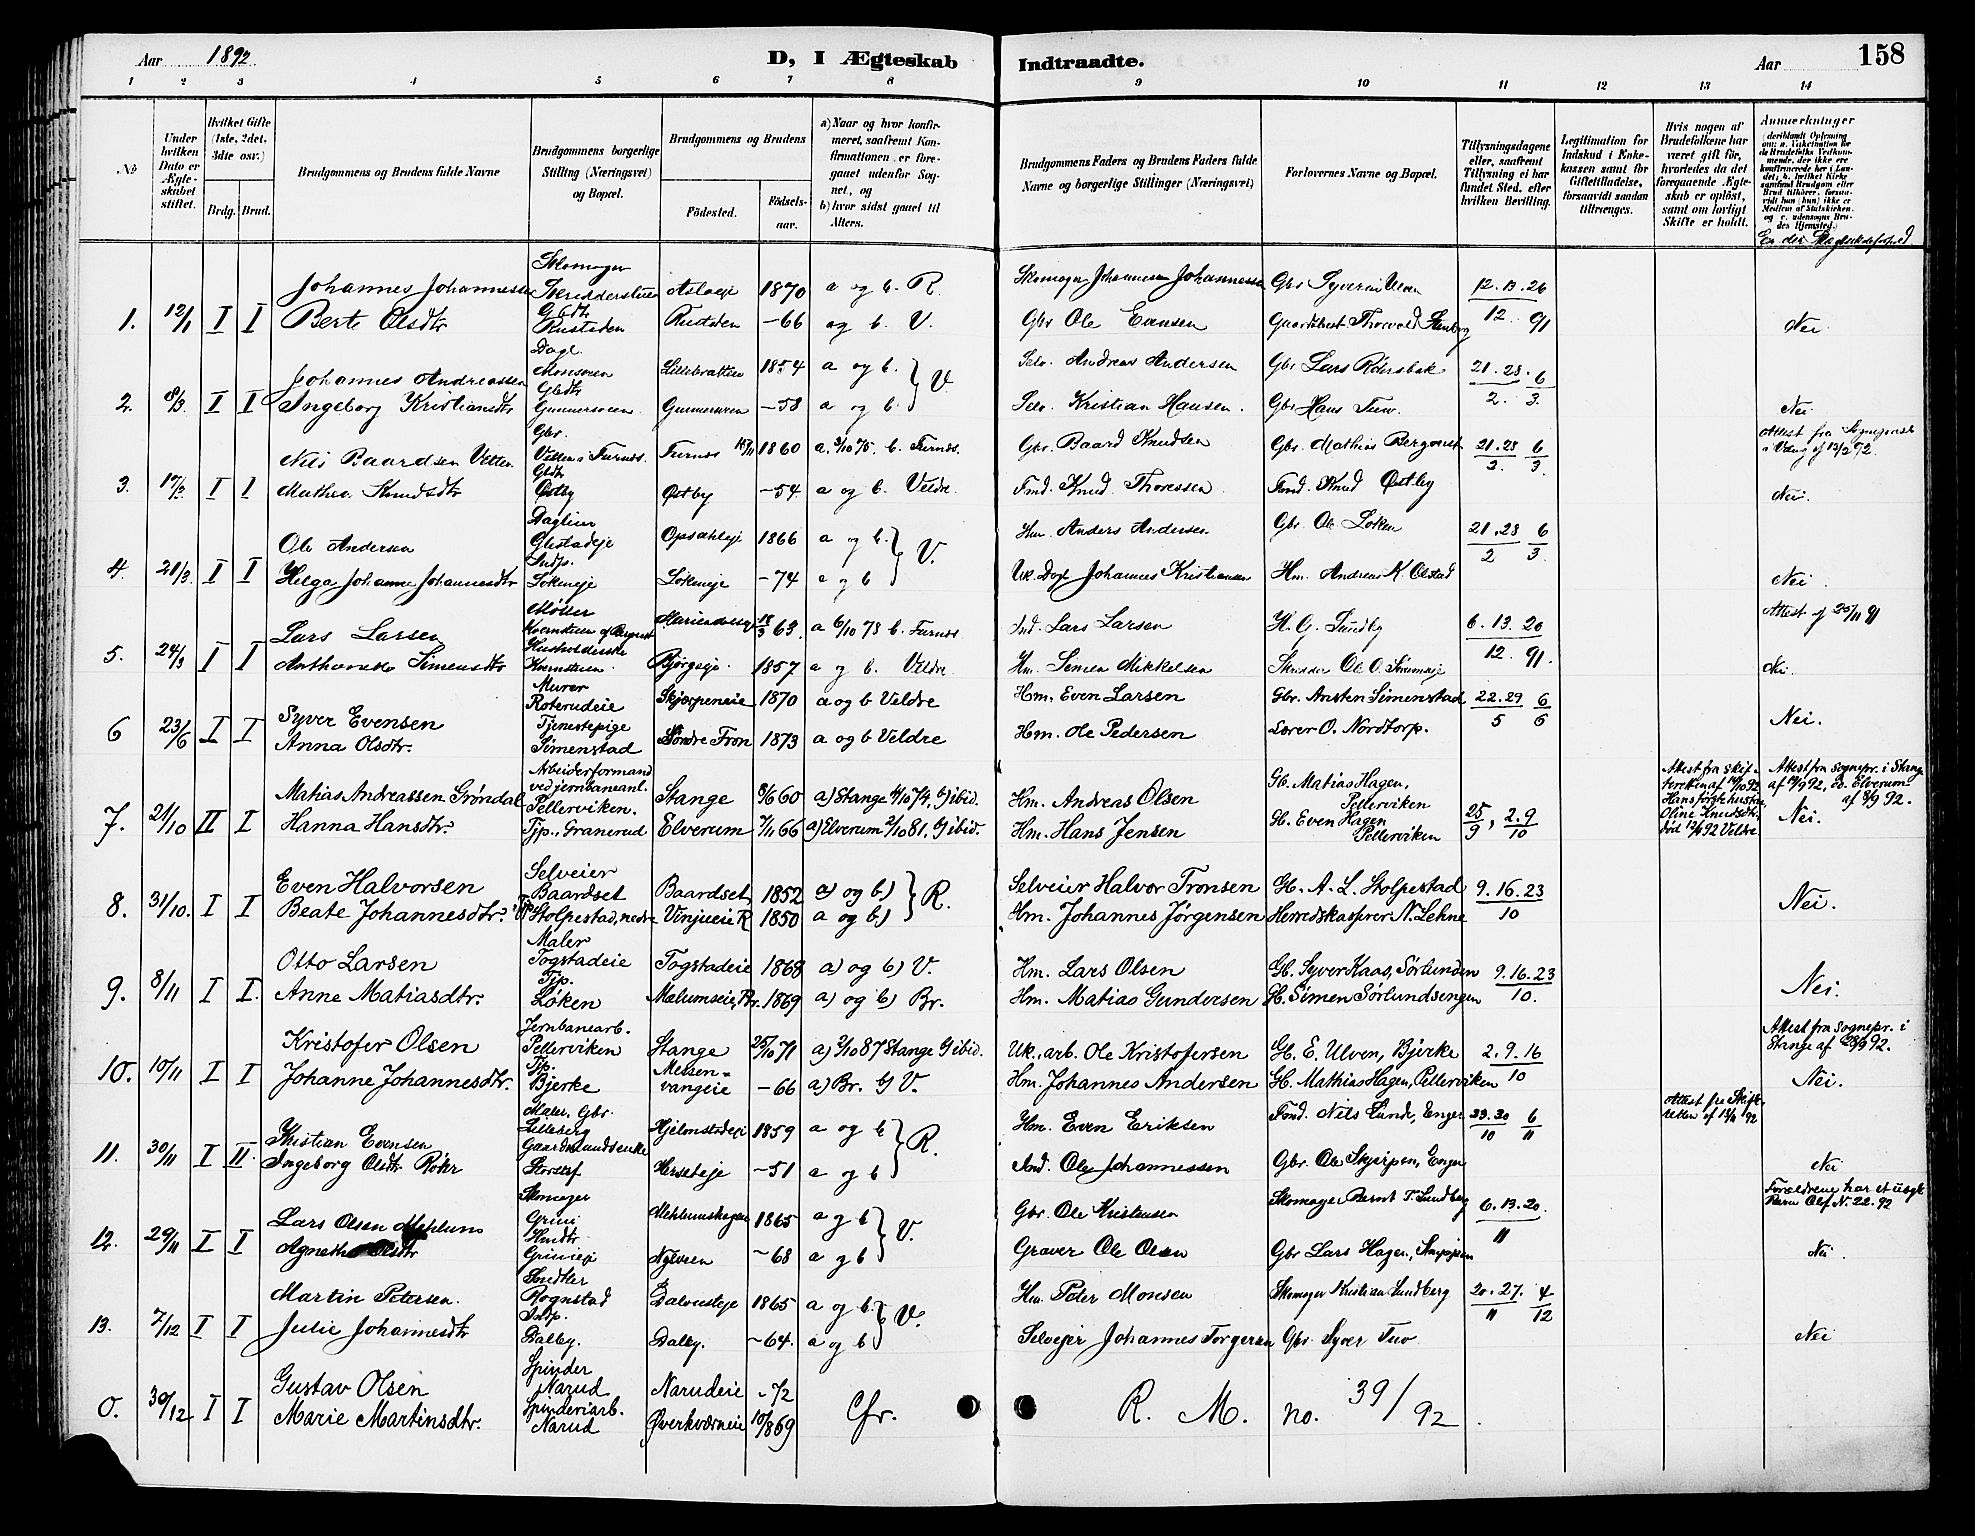 Aar 1892. D, I Ægteskab Indtraadte. Aar 158
1 2 3 4 5 6 7 8 9 10 11 12 13 14
No
Under hvilken Dato er Ægteskabet stiftet.
Hvilket Gifte (1ste, 2det, 3die osv.)
Brdg. Brud.
Brudgommens og Brudens fulde Navne
Brudgommens borgerlige Stilling (Næringsvei) og Bopæl.
Brudgommens og Brudens
Fødested. Fødselsaar.
a) Naar og hvor konfirmeret, saafremt Konfirmationen er foregaaet udenfor Sognet, og
b) hvor sidst gaaet til Alters.
Brudgommens Faders og Brudens Faders fulde Navne og borgerlige Stillinger (Næringsvei)
Forlovernes Navne og Bopæl.
Tillysningsdagene eller, saafremt Tillysning ei har fundet Sted, efter hvilken Bevilling.
Legitimation for Indskud i Enkekassen samt for Giftetilladelse, forsaavidt saadan tiltrænges.
Hvis nogen af Brudefolkene har været gift før, hvorledes da det foregaaende Ægteskab er opløst, samt om lovligt Skifte er holdt.
Anmærkninger
1. 12/1 I I Johannes Johannessen Skomager Aslveje 1870 a og b. R. Skomager Johannes Johannessen Gbr Syver Ulven 12.13.26
Berte Olsdtr Gbdtr Rustaden Rustaden -66 og b. V. Gbr Ole Evensen 12 91 Nei.
2. 8/3 I I Johannes Andreassen Dagl. 1854 a og b. } V Selv. Andreas Andersen Gbr Lars 21.28. 6
Ingeborg Kristiansdtr Gbdtr Gunnersveen Gunnersveen -58 a og b. Selv. Kristian Hansen. Gbr Hans Tuv. 2. 3. Nei.
3. 17/3 I I Nils Baardsen Velten Gbr. Velten i Furnes. Furnes 1860 a. 3/10 75. b. Furnes. Gbr. Baard Knudsen Gbr. Mathias 21.28 6
Mathea Knudsdtr Gbdtr Østby Østby -54 a og b. Veldre. Fmd. Knud Thoressen Fmd. Knud Østby 2. 3. Attest fra i Vang af 13/2 92. Nei.
4. 21/3 I I Ole Andersen Daglein Gbestadeje Opsahleje 1866 a og b. } V. Hm. Anders Andersen Gbr. Ole Løken 21.28 6
Helga Johanne Johannesdtr Indp. Løkeneje Løkeneje -74 a og b Uk. Dagl Johannes Kristiansen Hm. Andreas K. Olstad 2 3. Nei.
5. 24/3 I I Lars Larsen Møller 63. a 6/10 78 b. Furnes. Ind. Lars Larsen H. G. Sundby 6.13.20 Attest af 25/11 91
Anthonette Simensdtr Husholderske Kvernstuen Bjørgeje. 1857 a og b. Veldre. Hm. Simen Mikkelsen Skrædder Ole O. 12. 91. Nei.
6 23/6 I I Syver Evensen Murer Roterudeie Skjærpeneie 1870 a og b Veldre Hm. Even Larsen Gbr. Ansten Simenstad 22.29 6
Anna Olsdtr. Tjenestepige Simenstad Søndre Fron 1873 a og b Veldre Hm. Ole Pedersen Lærer O. Nordtorp. 5 6 Nei.
7. 21/10 II I Matias Andreassen Grøndal Arbeiderformand ved jernbaneanl. Pellerviken. Stange 8/6 60 a) Stange 4/10 74, b) ibid. Hm. Andreas Olsen Gb. Matias Hagen, Pellerviken 25/9, 2.9/10
Hanna Hansdtr. Tjp., Granerud Elverum 7/11 66 a) Elverum 2/10 81. b) ibid. Hm. Hans Jensen Gb. Even Hagen Pellerviken
Attest fra skifteretten af 14/10 92 Hans forige hustru Oline Knudsdtr. død 12/4 92 Veldre
Attest fra sognepr. i Stange af 19/9 92, do. Elverum af 8/9 92. Nei.
8. 31/10. I I Even Halvorsen Selveier Baardset Baardset 1852 a) og b) } R. Selveier Halvor Tronsen Gb. A. L. Stolpestad 9.16.23
Beate Johannesdtr. Tjp. Stolpestad, nedre Vinjueie R 1850 a og b) Hm. Johannes Jørgensen Herredskasserer N. Lehne 10 Nei.
9. 8/11 I I. Otto Larsen Maler Togstadeie Togstadeie 1868 a) og b) V. Hm. Lars Olsen Gb. Syver Kaas, Sørlunden 9.16.23
Anne Matiasdtr. Tjp. Løken Mælumseie, Br. 1869 a) og b) Br. Hm. Matias Gundersen Gb. Simen Sørlundsengen 10. Nei.
10. 10/11 I I Kristofer Olsen Jernbanearb. Pellerviken Stange 25/10 71 a) 2/10 87 Stange b) ibid. Uk., arb. Ole Kristofersen Gb. E. Ulven, Bjerke 2.9.16 Attest fra sognepr. i Stange af 28/9 92.
Johanne Johannesdtr. Tjp. Bjerke Messenvangeie -66 a) Br. b) V. Hm. Johannes Andersen Gb. Mathias Hagen, Pellerviken 10 Nei.
11. 30/11 I II. Kristian Evensen Maler, Gbr. Lilleberg Hjelmstadeje 1859 a og b } R. Hm. Even Eriksen Fmd. Nils Lunde, Enger 23.30 6 Attest fra Skifteretten af 12/11 92
Ingeborg Olsdtr Røhr Gaardmandsenke Herseteje -51 a og b Ind. Ole Johannessen Gbr. Ole Skjærpen, Enger 10 11 Nei
12. 29/11 I I Lars Olsen Mehlum Skomager Grini Mehlumshagen 1865 a og b } V. Gbr. Ole Kristiansen Skomager Bernt T. Sundberg 6.13.20. Forældrene har et uægt. Barn N. 22. 92
Agnethe Olsdtr Grinieje Nylveen -68 a og b Graver Ole Olsen Gbr Lars Hagen, 11 Nei.
13. 7/12 I I Martin Petersen. Snedker Rognstad Dalveisteje 1865 a og b. } V. Hm. Peder Monsen Skomager Kristian Sundberg 20.27. 4
Julie Johannesdtr Indp. Dalby. Dalby. -64. a og b Selvejer Johannes Torgersen Gbr. Syver Tuv 11 12 Nei
0. 30/12 I I Gustav Olsen Spinder Narud Narudeie -72 Cfr. R. M. no. 39/92.
Marie Martinsdtr. Spinderiarb. Narud Øverkværneie 10/8 69